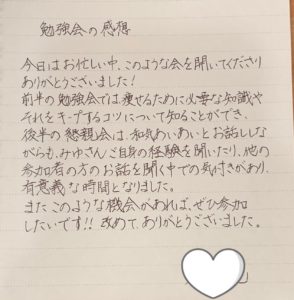 勉強会の感想
今日はお忙しい中、このような会を開いてくださり
ありがとうございました!
前半の勉強会では、痩せるために必要な知識や
それをキープするコツについて知ることができ、
後半の懇親会は、和気あいあいとお話ししな
がらも、みゆさんご自身の経験を聞いたり、他の
参加者の方のお話を聞く中での気付きがあり、
有意義な時間となりました。
またこのような機会があれば、ぜひ参加
したいです!! 改めて、ありがとうございました。